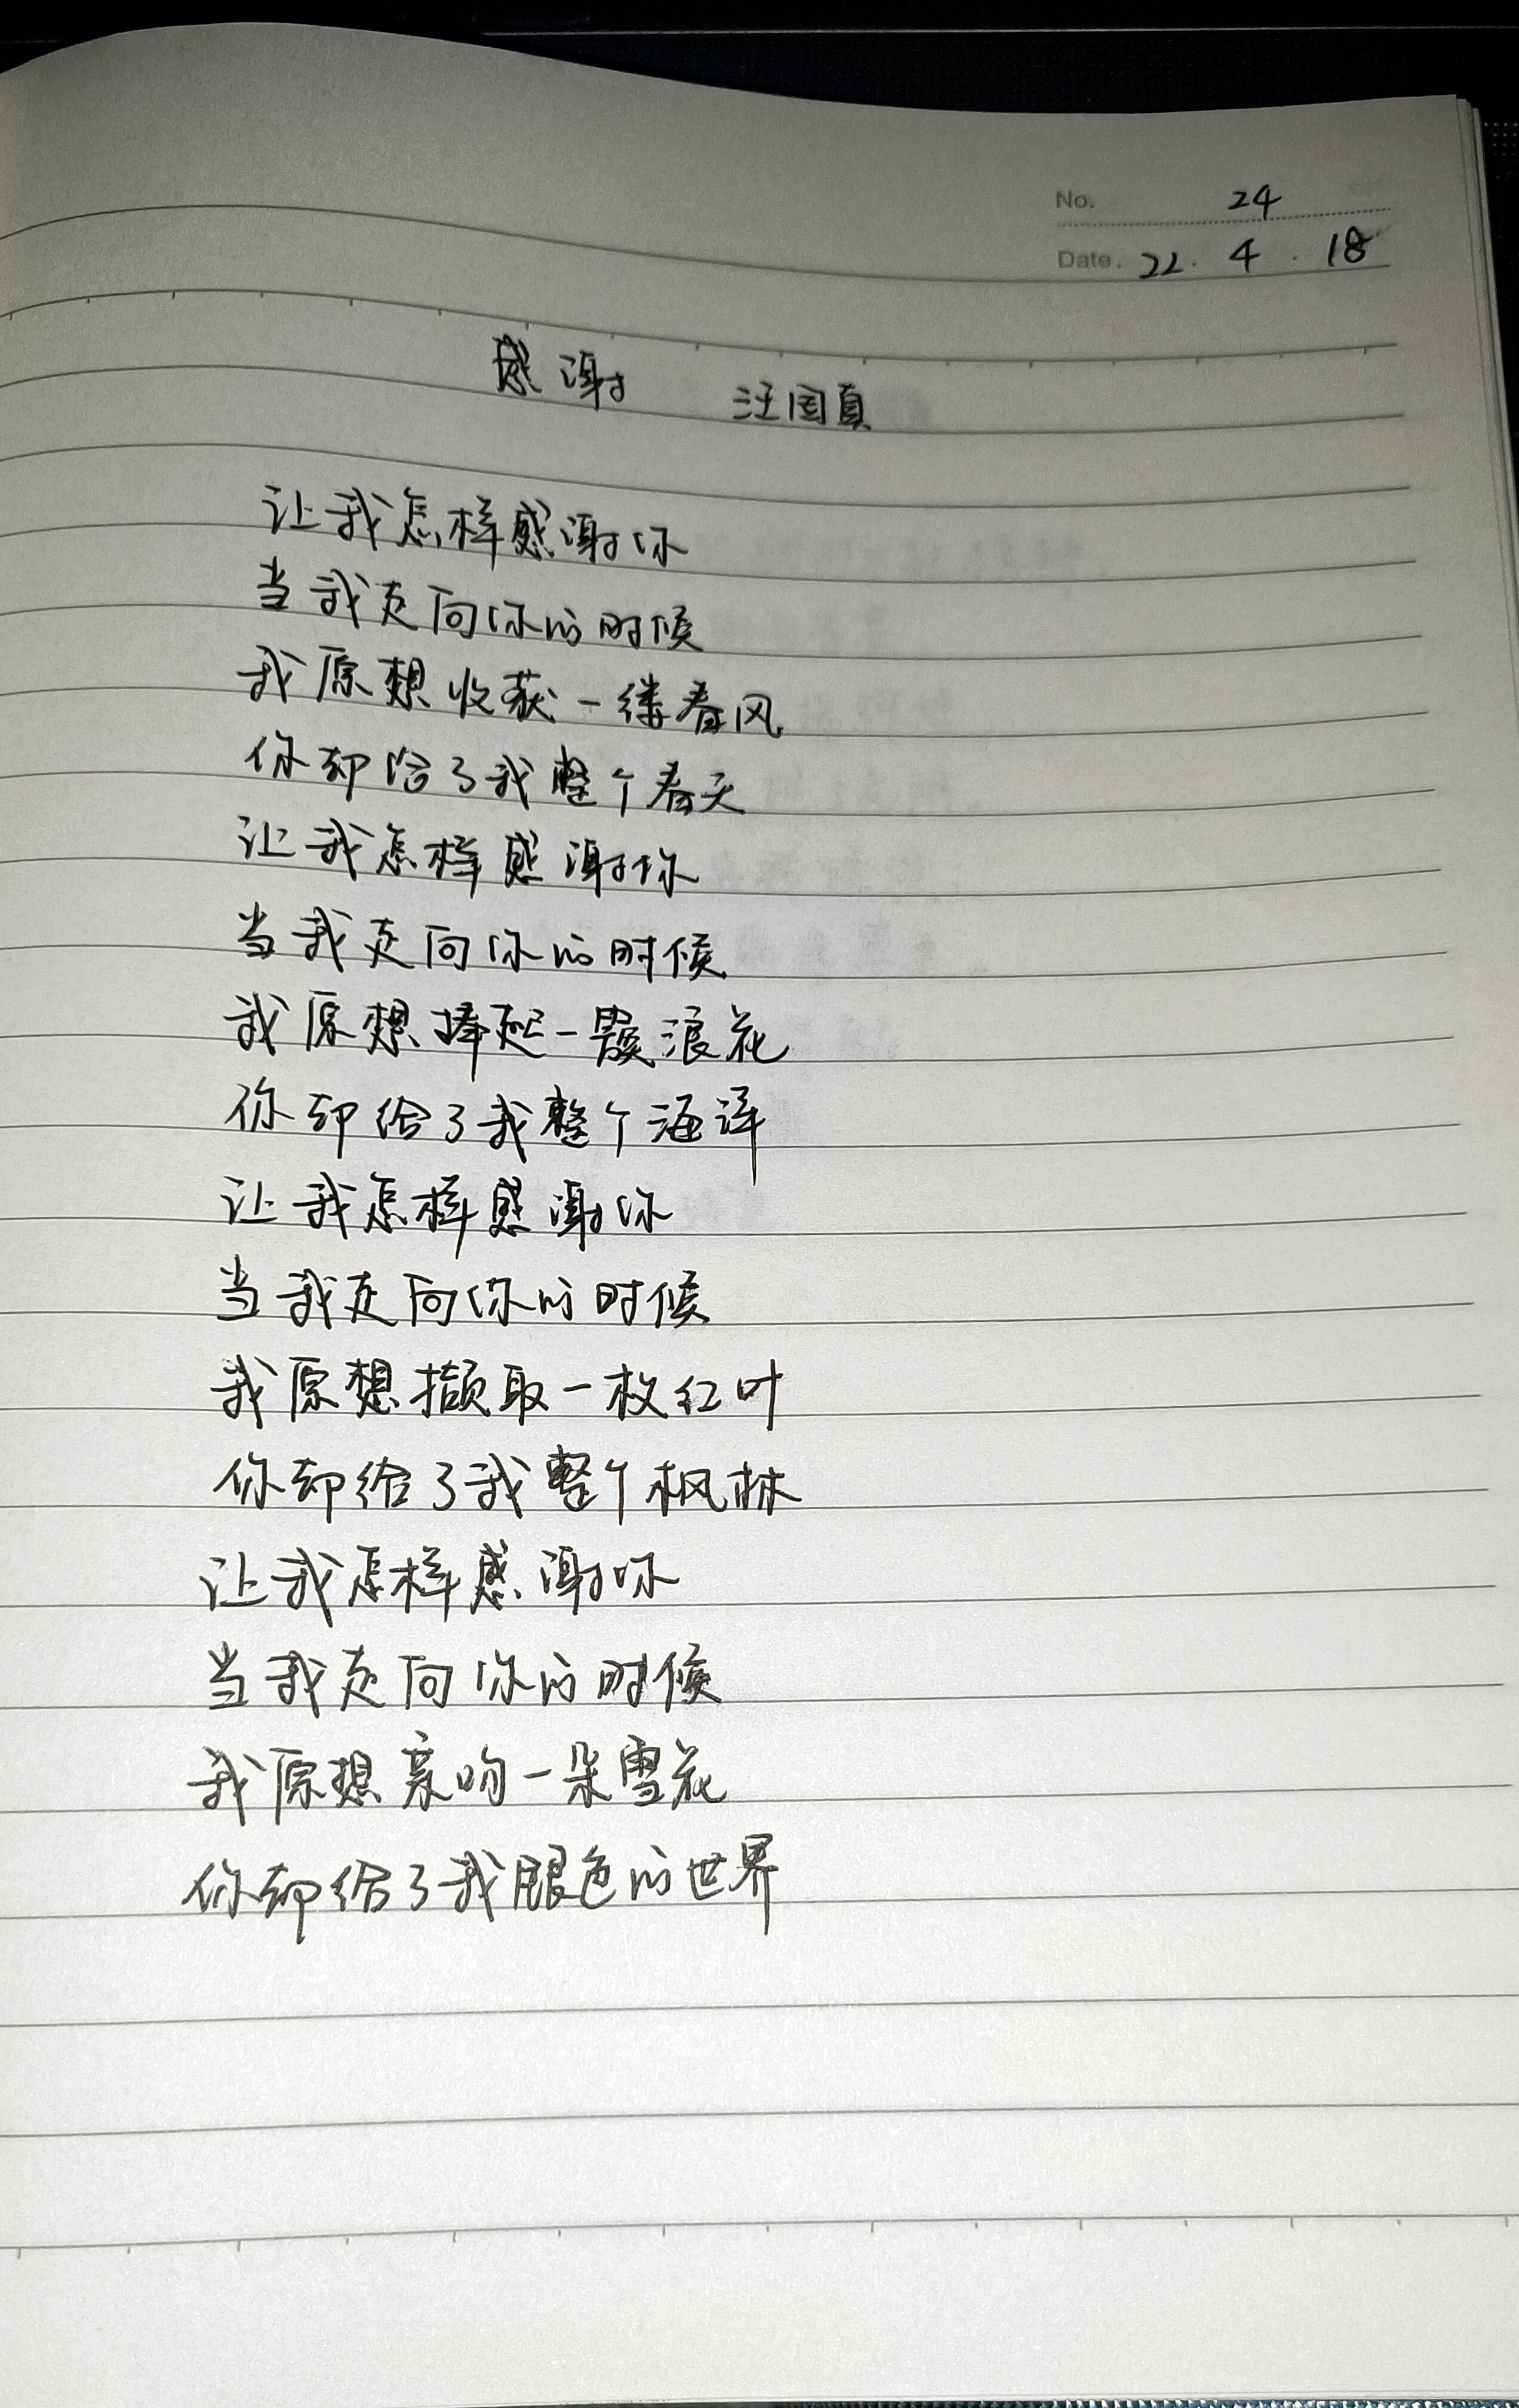 No. 24
Date. 22. 4. 18
感谢 汪国真
让我怎样感谢你
当我走向你的时候
我原想收获一缕春风
你却给了我整个春天
让我怎样感谢你
当我走向你的时候
我原想捧起一簇浪花
你却给了我整个海洋
让我怎样感谢你
当我走向你的时候
我原想撷取一枚红叶
你却给了我整个枫林
让我怎样感谢你
当我走向你的时候
我原想亲吻一朵雪花
你却给了我银色的世界